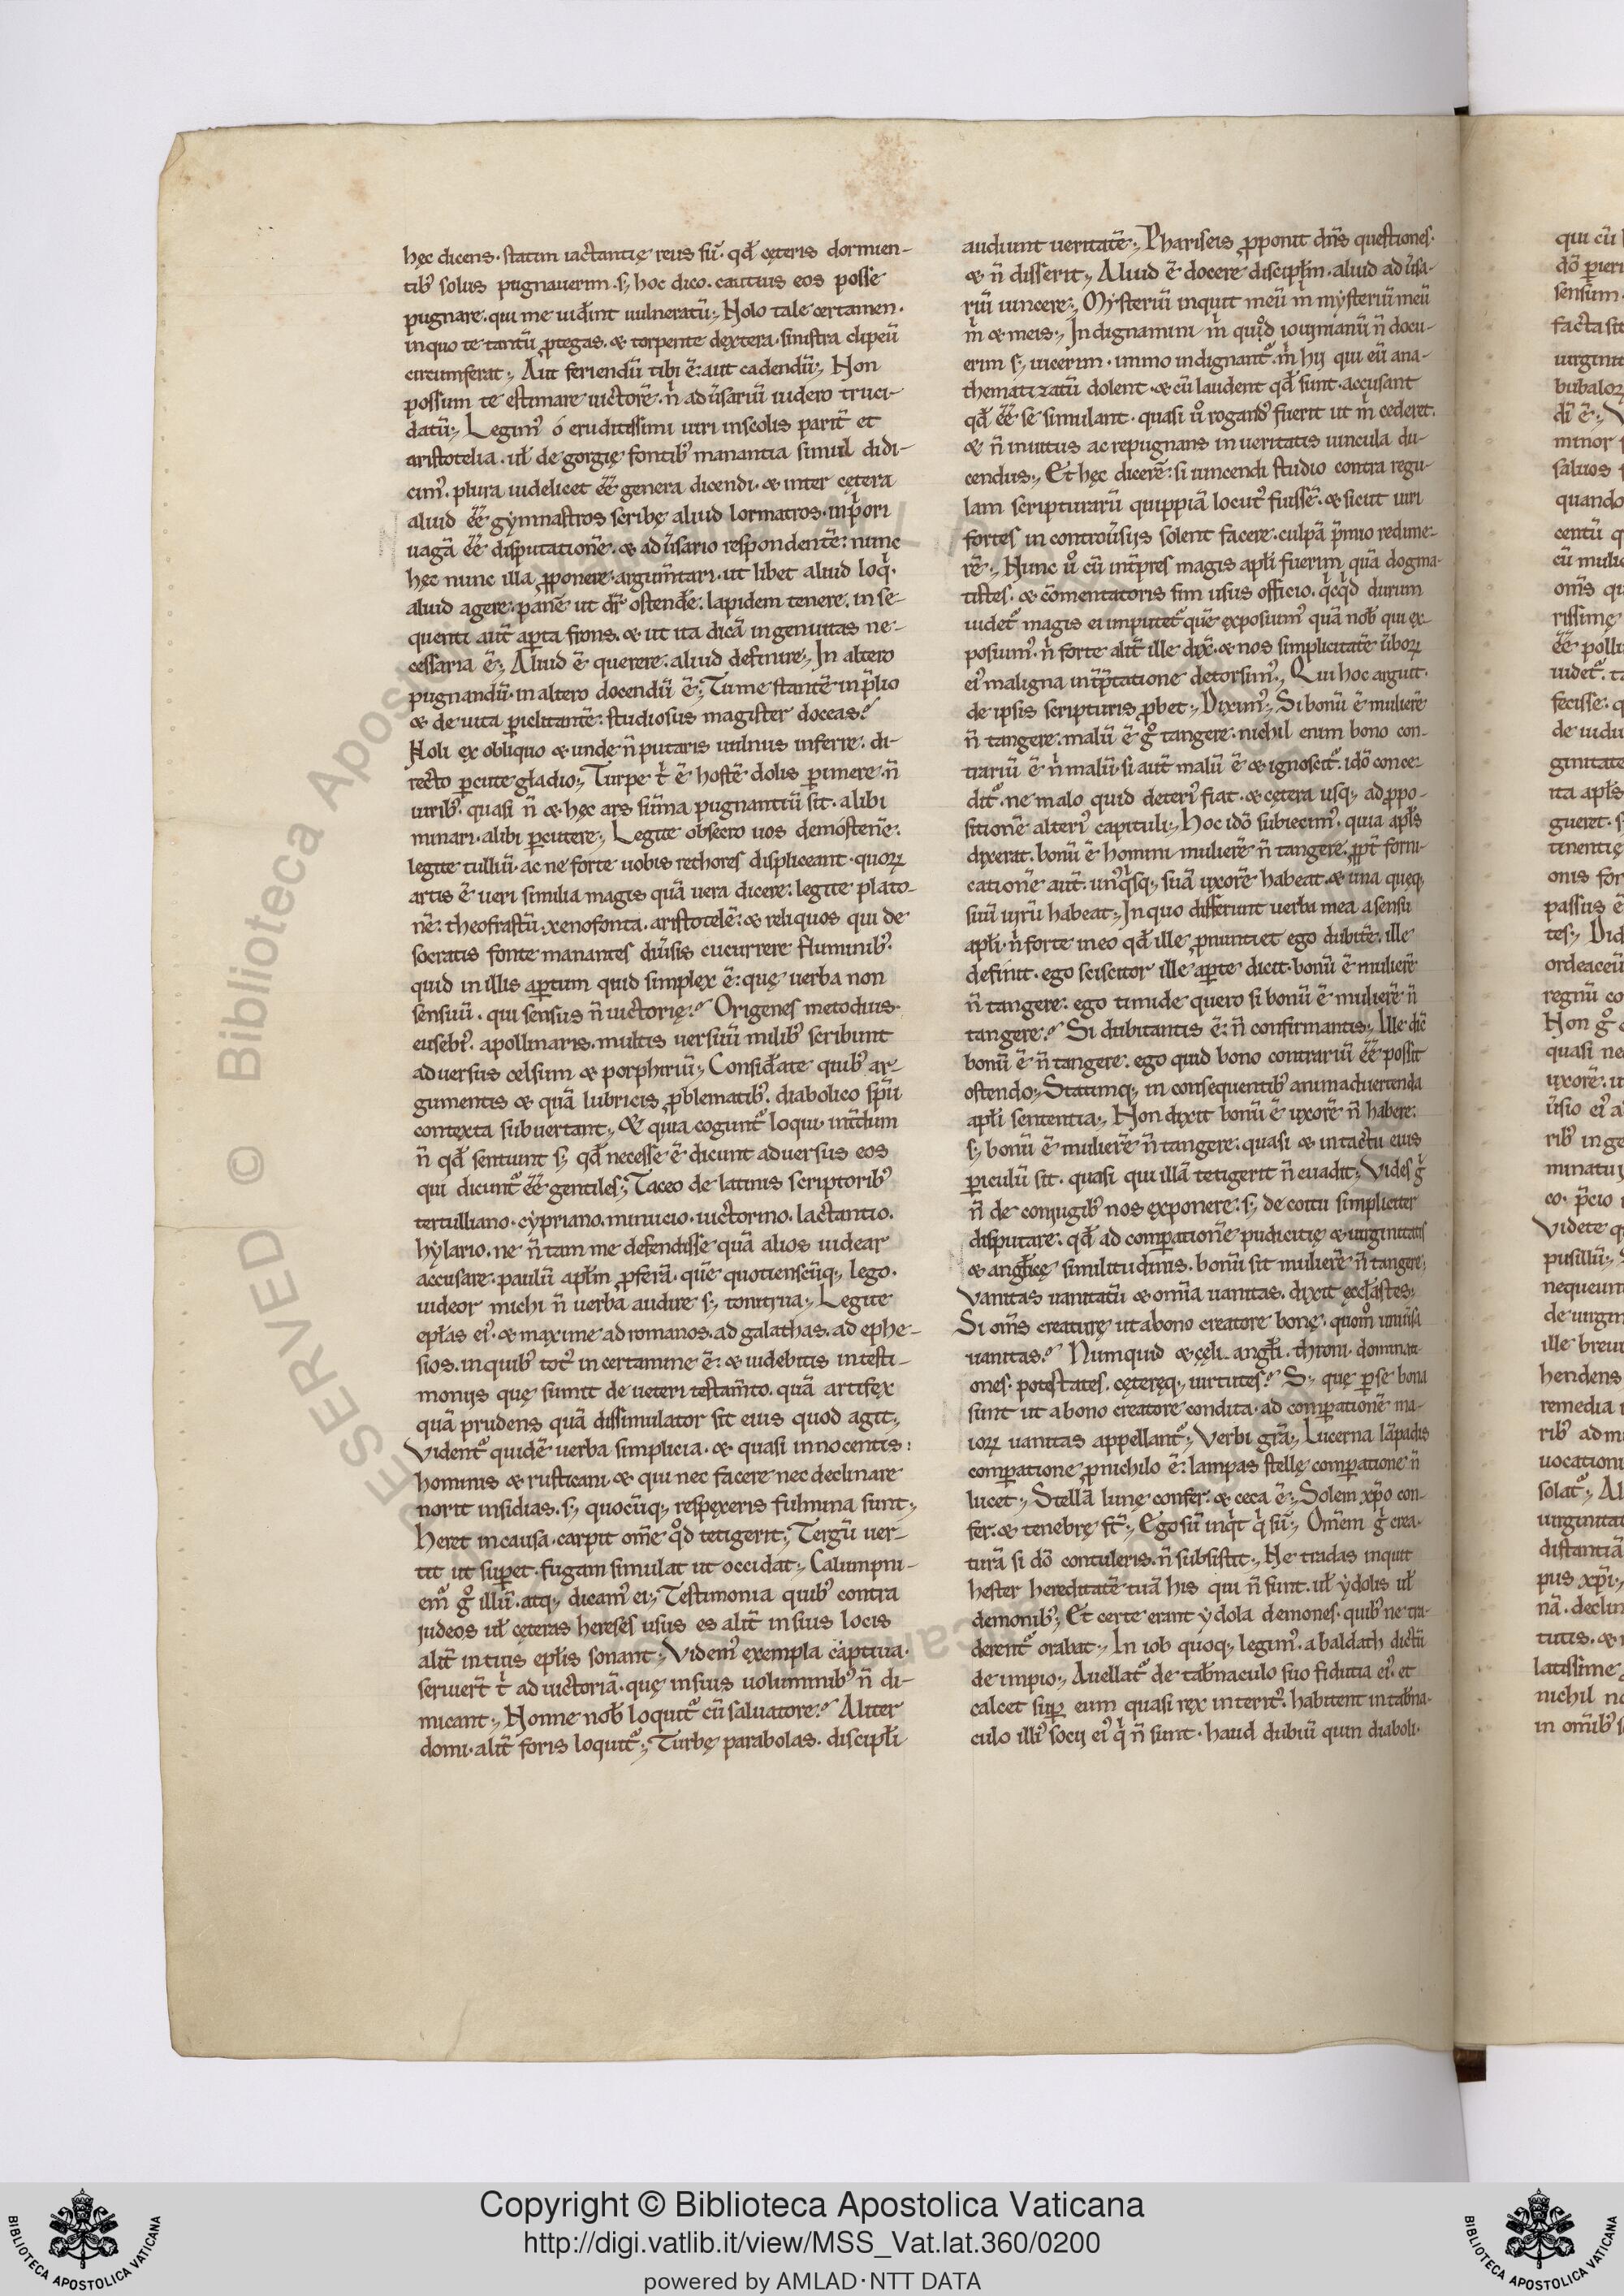 hęc dicens· statim iactantię reus sū· qđ cęteris dormien-
tibꝰ solus pugnauerim· s; hoc dico· cautius eos posse
pugnare· qui me uiđint uulneratū; Nolo tale certamen·
inquo te tantū ꝓtegas· & torpente dextera· sinistra clipeū
circumferat; Aut feriendū tibi ē: aut cadendū; Non
possum te estimare uictorē· n̄ aduˉsariū uidero truci-
datū; Legimꝰ ó eruditissimi uiri inscolis parit̄ et
aristotelia· uł de gorgię fontibꝰ manantia simul didi-
cimꝰ· plura uidelicet ēē genera dicendi· & inter cętera
aliud ēē gymnastros scribę aliud lormatros· inp̄ori
uagā ēē disputationē· & aduˉsario respondentē: nunc
hęc nunc illa ꝓponere· argum̄tari· ut libet aliud loqⁱ·
aliud agere· panē ut dr̄ ostendēe· lapidem tenere· in se-
quenti aut̄ aꝑta frons· & ut ita dicā ingenuitas ne-
cessaria ē; Aliud ē querere· aliud definire; In altero
pugnandū· in altero docendū ē; Tu me stantē inp̄lio
& de uita ꝑiclitantē: studiosus magister doceas?
Noli ex obliquo & unde n̄ putaris uulnus inferre· di-
recto ꝑcute gladio; Turpe tⁱ ē hostē dolis ꝑimere· n̄
uiribꝰ· quasi n̄ & hęc ars sūma pugnantiū sit· alibi
minari· alibi ꝑcutere; Legite obsecro uos demostenē:
legite tulliū· ac ne forte uobis rethores displiceant· quoꝝ
artis ē ueri similia magis quā uera dicere: legite plato-
nē: theofrastū· xenofonta· aristotelē: & reliquos qui de
socratis fonte manantes diuˉsis cucurrere fluminibꝰ·
quid in illis aꝑtum quid simplex ē: quę uerba non
sensiuū· qui sensus n̄ uictorię? Origenes metodius·
eusebiꝰ· apollinaris· multis uersiuū milibꝰ scribunt
aduersus celsum & porphiriū; Considēate quibꝰ ar-
gumentis & quā lubricis ꝓblematibꝰ· diabolico sp̄u
contexta subuertant; & quia cogunt᷑ loqui· int̄dum
n̄ qđ sentiunt s; qđ necesse ē dicunt aduersus eos
qui dicunt᷑ ēē gentiles; Taceo de latinis scriptoribꝰ
tertulliano· cypriano· minucio· uictorino· lactantio·
hylario· ne n̄ tam me defendisse quā alios uidear
accusare· paulū apłm ꝓferā· quē quotienscūq; lego·
uideor michi n̄ uerba audire s; tonitrua; Legite
epłas eiꝰ· & maxime ad romanos· ad galathas· ad ephe-
sios· in quibꝰ totꝰ in certamine ē: & uidebitis in testi-
monijs quę sumit de ueteri testam̄to· quā artifex
quā prudens quā dissimulator sit eius quod agit;
Vident᷑ quidē uerba simplicia· & quasi innocentis:
hominis & rusticani· & qui nec facere nec declinare
norit insidias· s; quocūq; respexeris fulmina sunt;
Heret in causa· carpit om̄e qͦd tetigerit; Tergū uer-
tit ut suꝑet· fugam simulat ut occidat; Calumpni-
em᷑ gͦ illū· atq; dicamꝰ ei; Testimonia quibꝰ contra
judeos uł cęteras hereses usus es alit̄ in suis locis
alit̄ in tuis epłis sonant; Videmꝰ exempla captiua·
seruier̄t tⁱ ad uictoriā· quę in suis uoluminibꝰ n̄ di-
micant; Nonne nob̄ loquit᷑ cū saluatore? Aliter
domi· alit̄ foris loquit᷑; Turbę parabolas· discipłi
audiunt ueritatē; Phariseis ꝓponit dn̄s questiones·
& n̄ disserit; Aliud ē docere discipłm· aliud aduˉsa-
riū uincere; Mysteriū inquit meū m̄ mysteriū meū
m̄ & meis; Indignamini mⁱ quiͦd iouinianū n̄ docu-
erim s; uicerim· immo indignant᷑ mⁱ hij qui eū ana-
thematizatū dolent· & cū laudent qđ sunt· accusant
qđ ēē se simulant· quasi uͦ rogandꝰ fuerit ut mⁱ cederet·
& n̄ inuitus ac repugnans in ueritatis uincula du-
cendus; Et hęc dicerē: si uincendi studio contra regu-
lam scripturarū quippiā locutꝰ fuissē· & sicut uiri
fortes in controuˉsijs solent facere· culpā p̄mio redime-
rē; Nunc uͦ cū int̄pres magis apłi fuerim quā dogma-
tistes· & cōmentatoris sim usus officio· qⁱcqⁱd durum
uidet᷑ magis ei imputet᷑ quē exposuimꝰ quā nob̄ qui ex-
posuimꝰ· nⁱ forte alit̄ ille dix̄· & nos simplicitatē uˉboꝝ
eiꝰ maligna int̄p̄tatione detorsimꝰ; Qui hoc arguit·
de ipsis scripturis ꝓbet; Diximꝰ; Si bonū ē mulierē
n̄ tangere· malū ē gͦ tangere· nichil enim bono con-
trariū ē nⁱ malū· si aut̄ malū ē & ignoscit᷑· idō conce-
dit᷑· ne malo quid deteriꝰ fiat· & cętera usq; ad ꝓpo-
sitionē alteriꝰ capituli; Hoc idō subiecimꝰ· quia apłs
dixerat· bonū ē homini mulierē n̄ tangere· ꝓpt̄ forni-
cationē aut̄· unꝰqⁱsq; suā uxorē habeat· & una queq;
suū uirū habeat; In quo differunt uerba mea a sensu
apłi· nⁱ forte in eo qđ ille ꝓnuntiet ego dubitē· ille
definit· ego sciscitor ille aꝑte dicit· bonū ē mulierē
n̄ tangere: ego timide quero si bonū ē mulierē n̄
tangere? Si dubitantis ē: n̄ confirmantis; Ille dic̄
bonū ē n̄ tangere· ego quid bono contrariū ēē possit
ostendo; Statimq; in consequentibꝰ animaduertenda
apłi sententia; Non dixit bonū ē uxorē n̄ habere:
s; bonū ē mulierē n̄ tangere: quasi & in tactu eius
ꝑiculū sit· quasi qui illā tetigerit n̄ euadit; Vides gⁱ
n̄ de conjugibꝰ nos exponere: s; de coitu simpliciter
disputare: qđ ad comꝑationē pudicitię & uirginitatis
& angłicę similitudinis· bonū sit mulierē n̄ tangere;
Vanitas uanitatū & om̄ia uanitas· dixit ęccłastes:
Si om̄s creaturę ut a bono creatore bonę· quom̊ uniuˉsa
uanitas? Numquid & cęli· angłi· throni· dominati-
ones· potestates· cęteręq; uirtutes? S; quę ꝑ se bona
sunt ut a bono creatore condita· ad comꝑationē ma-
ioꝝ uanitas appellant᷑; Verbi grā; Lucerna lāpadis
comꝑatione ꝓ nichilo ē: lampas stellę comꝑatione n̄
lucet; Stellā lunę confer· & ceca ē; Solem xp̄o con-
fer· & tenebrę st̄; Ego sū inqⁱt qⁱ sū; Om̄em gⁱ crea-
turā si dō contuleris· n̄ subsistit; Ne tradas inquit
hester hereditatē tuā his qui n̄ sunt· uł ydolis uł
demonibꝰ; Et certe erant ydola demones· quibꝰ ne tra-
derent᷑ orabat; In iob quoq; legimꝰ· a baldath dictū
de impio; Auellat᷑ de tab̄naculo suo fidutia eiꝰ· et
calcet suꝑ eum quasi rex interitꝰ· habitent in tab̄na-
culo illiꝰ socij eiꝰ qⁱ n̄ sunt· haud dubiū quin diaboli·
Copyright © Biblioteca Apostolica Vaticana
http://digi.vatlib.it/view/MSS_Vat.lat.360/0200
powered by AMLAD·NTT DATA
BIBLIOTECA APOSTOLICA VATICANA
BIBLIOTECA APOSTOLICA VATICANA